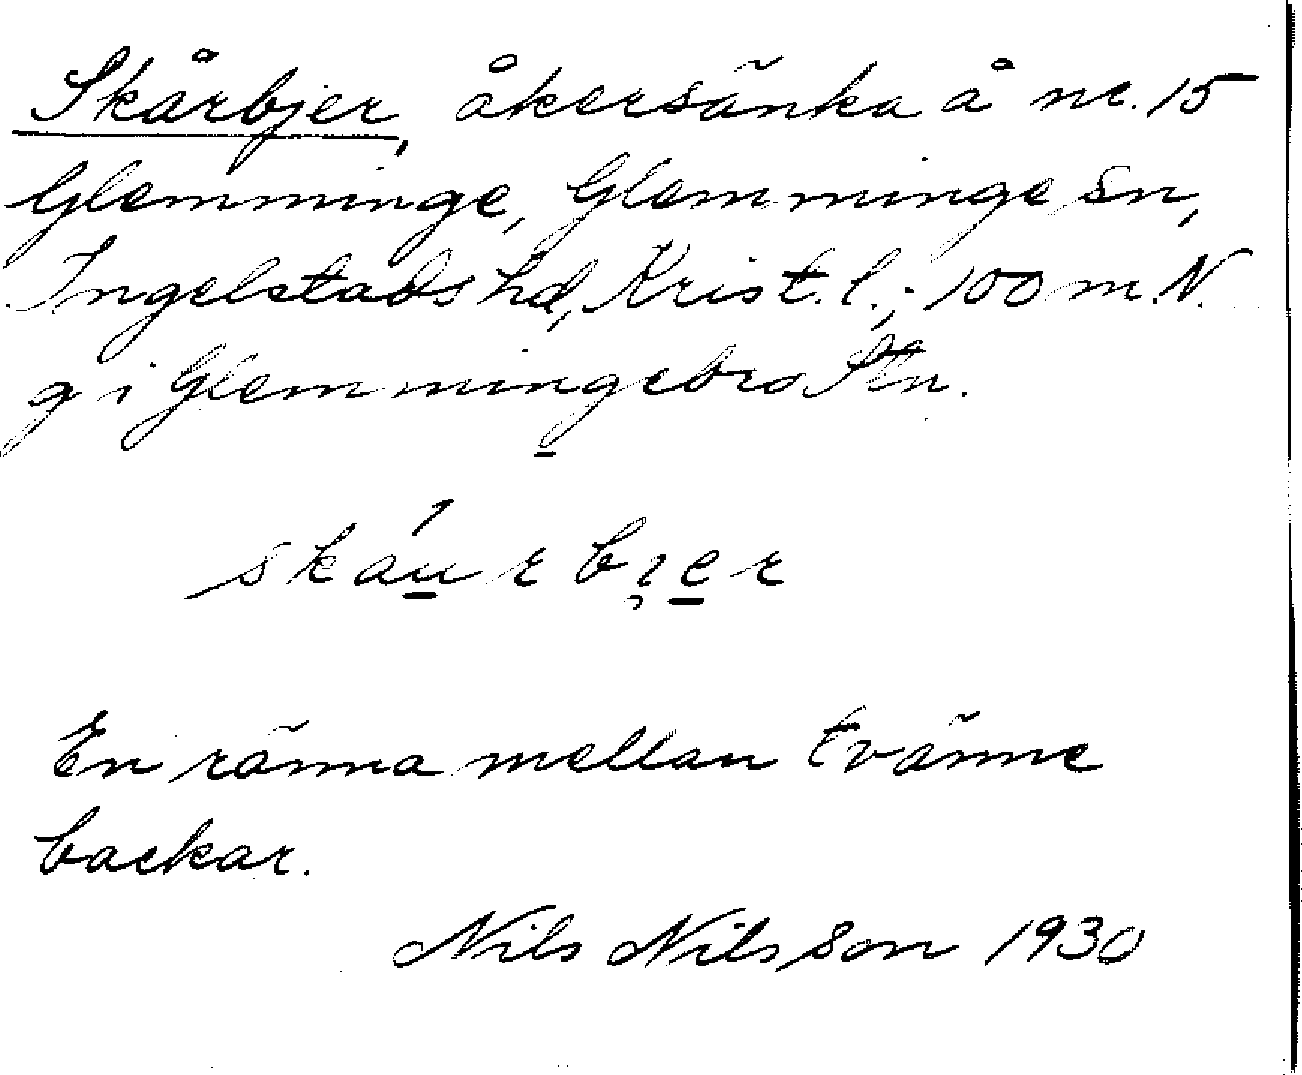 Skårbjer, åkersänka å nr. 15
Glemminge, Glemminge sn,
Ingelstads hd, Krist. l.; 100 m. N.
g i Glemmingebro Stn.
skáu̲rbi̯e̲r
En ränna mellan tvänne
backar.
Nils Nilsson 1930